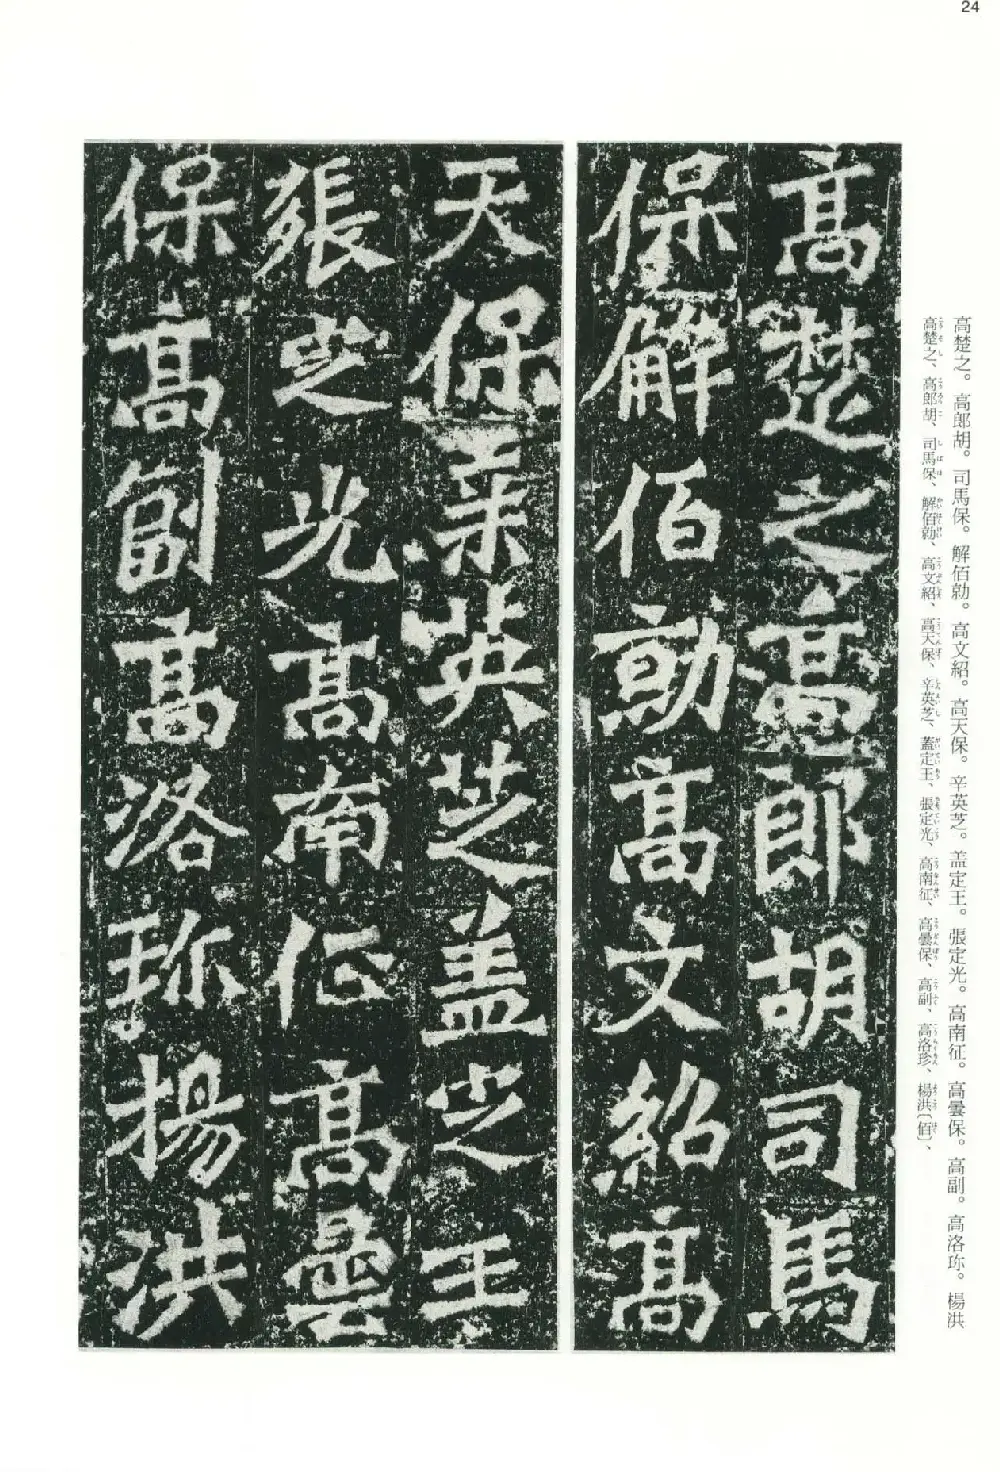 24
高楚之。高郎胡。司馬保。解佰勍。高文紹。高天保。辛英芝。盖定王。張定光。高南征。高曇保。高副。高洛珎。楊洪
高楚之、高郎胡、司馬保、解佰勍、高文紹、高天保、辛英芝、蓋定王、張定光、高南征、高曇保、高副、高洛珍、楊洪〔佰〕、
高楚之高郎胡司馬
保解佰勍高文紹高
天保辛英芝盖定王
張定光高南征高曇
保高副高洛珎楊洪